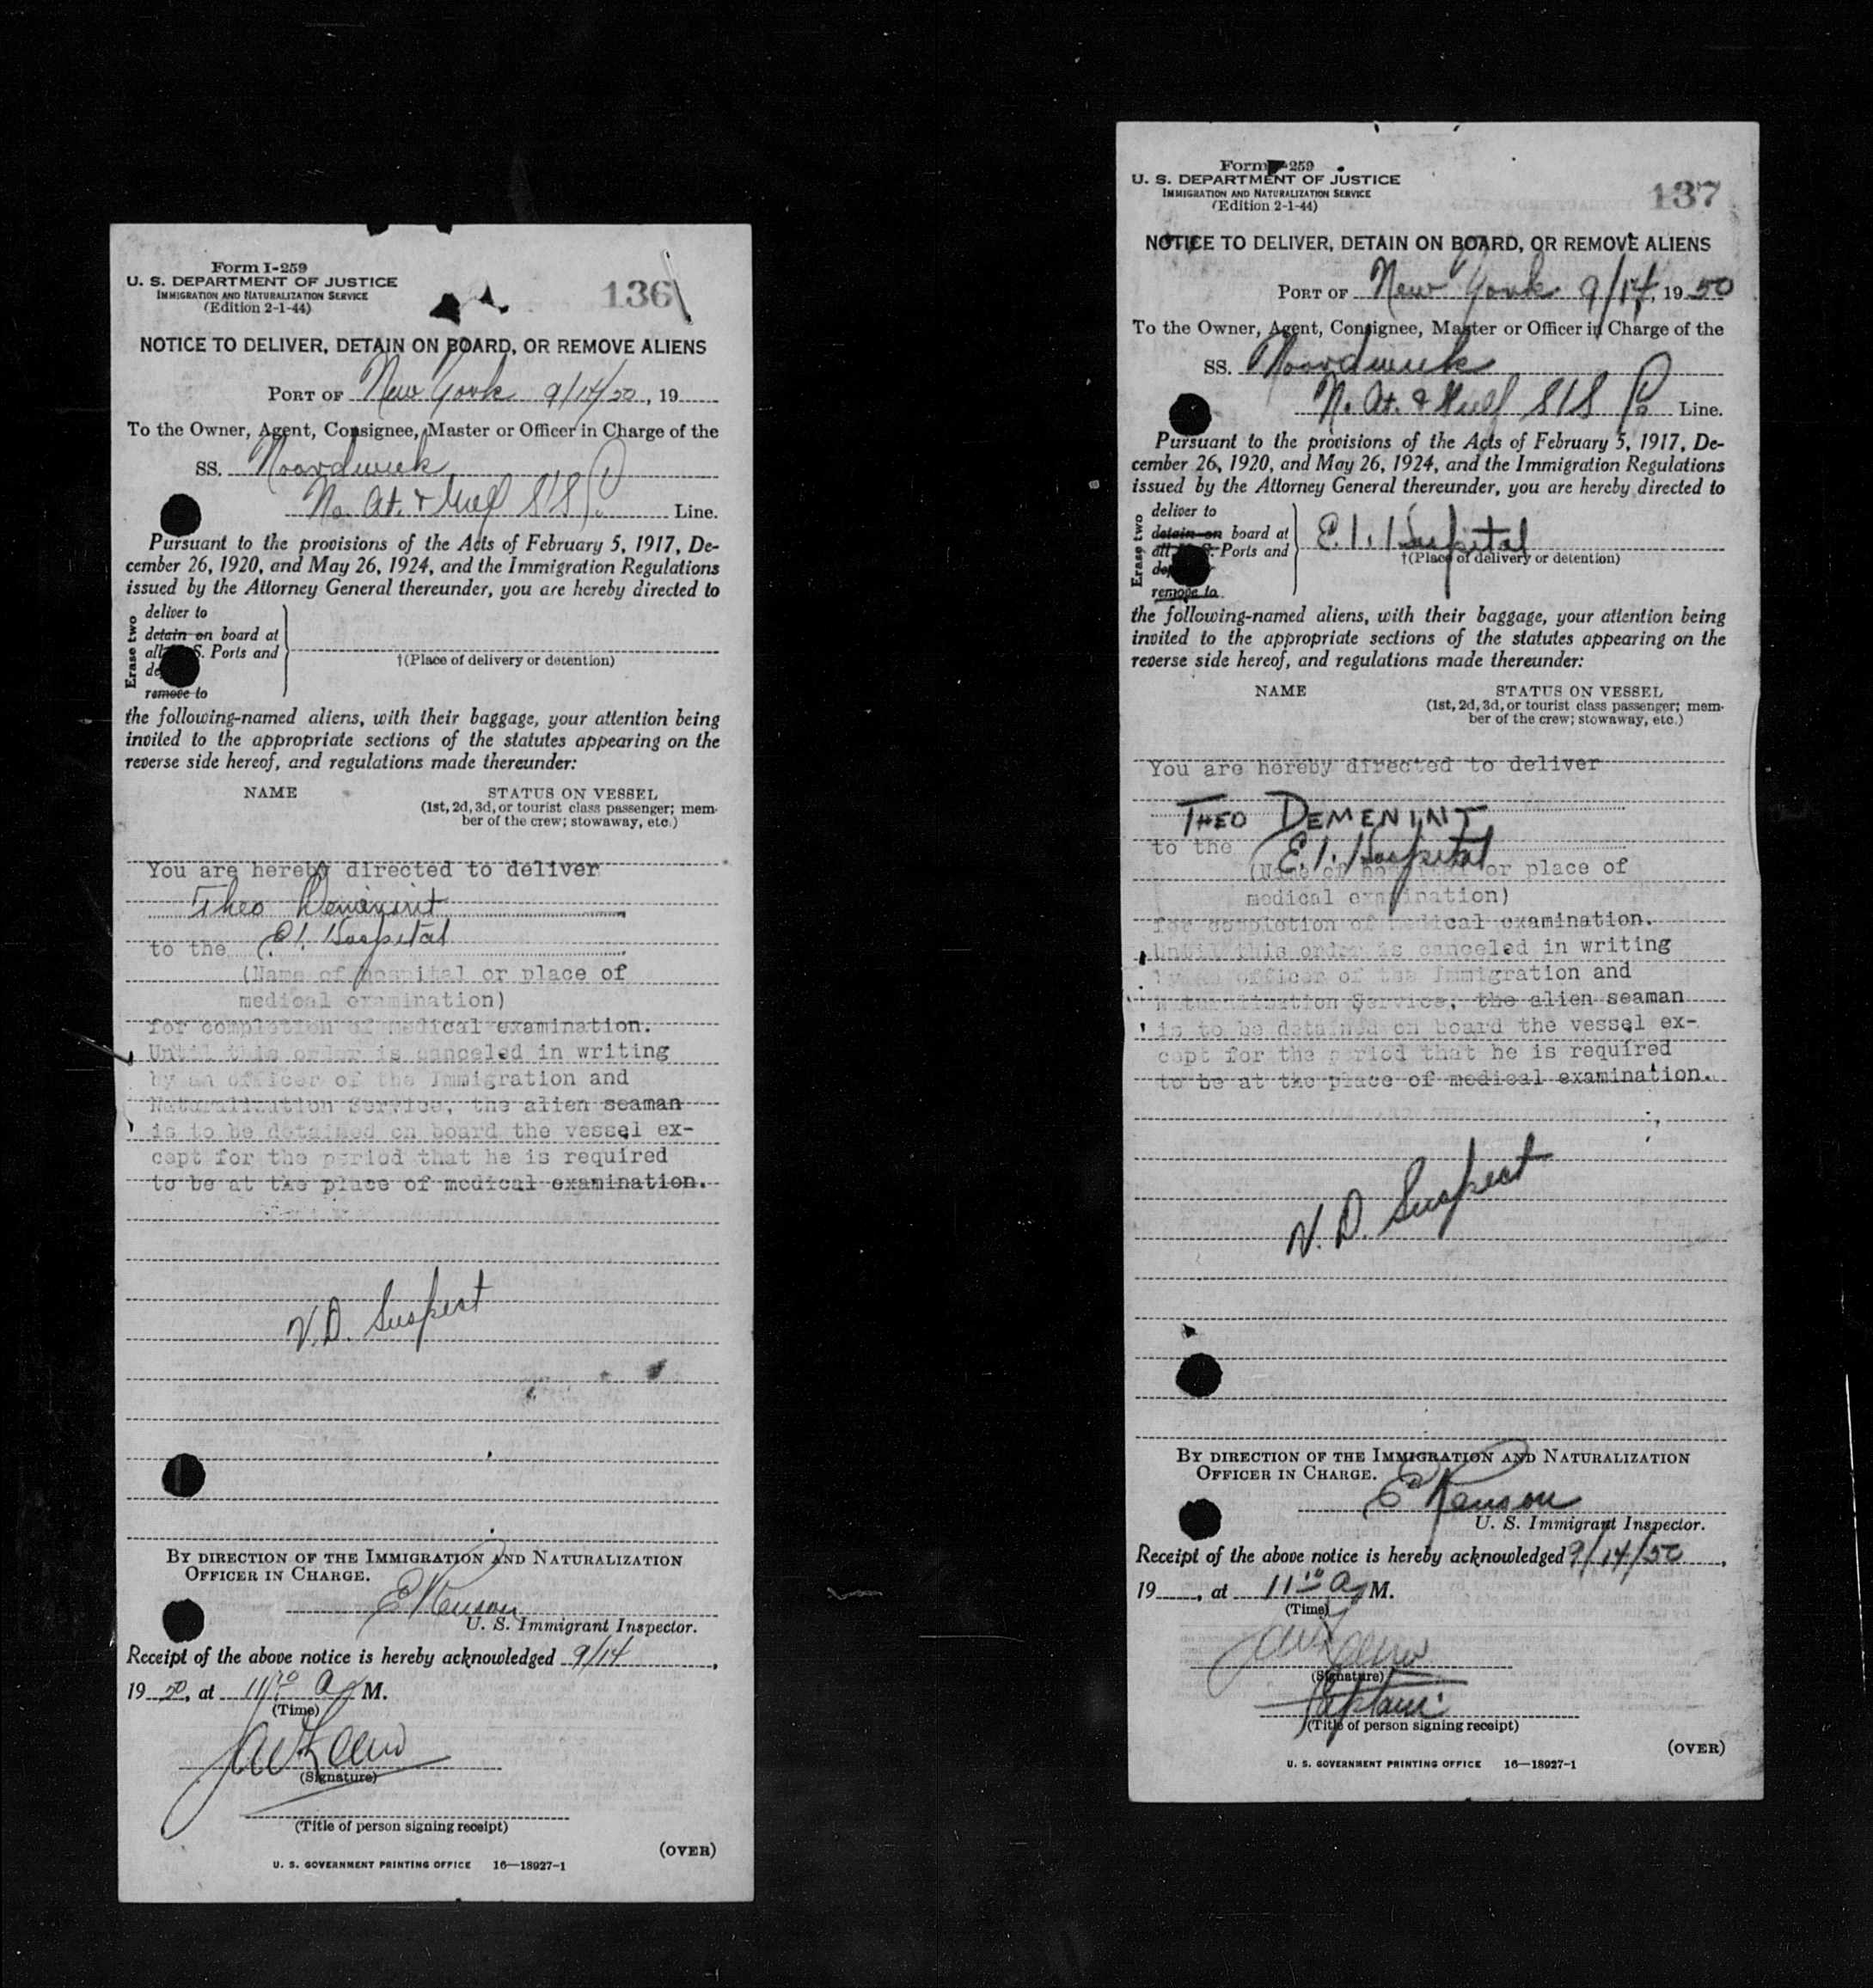 Form I-259
U. S. DEPARTMENT OF JUSTICE
IMMIGRATION AND NATURALIZATION SERVICE
(Edition 2-1-44)
136
NOTICE TO DELIVER, DETAIN ON BOARD, OR REMOVE ALIENS
PORT OF New York 9/14/50, 19
To the Owner, Agent, Consignee, Master or Officer in Charge of the
SS.
No. At. & Gulf S/S Line.
Pursuant to the provisions of the Acts of February 5, 1917, De-
cember 26, 1920, and May 26, 1924, and the Immigration Regulations
issued by the Attorney General thereunder, you are hereby directed to
Erase two
deliver to
detain on board at
all S. Ports and
remove to
†(Place of delivery or detention)
the following-named aliens, with their baggage, your attention being
invited to the appropriate sections of the statutes appearing on the
reverse side hereof, and regulations made thereunder:
NAME STATUS ON VESSEL
(1st, 2d, 3d, or tourist class passenger; mem-
ber of the crew; stowaway, etc.)
You are hereby directed to deliver
Theo Demenint
to the E.I. Hospital
(Name of hospital or place of
medical examination)
for completion of medical examination.
Until this order is canceled in writing
by an officer of the Immigration and
Naturalization Service, the alien seaman
is to be detained on board the vessel ex-
cept for the period that he is required
to be at the place of medical examination.
V.D. Suspect
BY DIRECTION OF THE IMMIGRATION AND NATURALIZATION
OFFICER IN CHARGE.
U. S. Immigrant Inspector.
Receipt of the above notice is hereby acknowledged 9/14,
19 50, at 11 10 A M.
(Time)
(Signature)
(Title of person signing receipt)
(OVER)
U. S. GOVERNMENT PRINTING OFFICE 16—18927-1
Form -259
U. S. DEPARTMENT OF JUSTICE
IMMIGRATION AND NATURALIZATION SERVICE
(Edition 2-1-44)
137
NOTICE TO DELIVER, DETAIN ON BOARD, OR REMOVE ALIENS
PORT OF New York 9/14, 19 50
To the Owner, Agent, Consignee, Master or Officer in Charge of the
SS.
No. At. & Gulf S/S Co Line.
Pursuant to the provisions of the Acts of February 5, 1917, De-
cember 26, 1920, and May 26, 1924, and the Immigration Regulations
issued by the Attorney General thereunder, you are hereby directed to
Erase two
deliver to
detain on board at
all S. Ports and
remove to
E. I. Hospital
†(Place of delivery or detention)
the following-named aliens, with their baggage, your attention being
invited to the appropriate sections of the statutes appearing on the
reverse side hereof, and regulations made thereunder:
NAME STATUS ON VESSEL
(1st, 2d, 3d, or tourist class passenger; mem-
ber of the crew; stowaway, etc.)
You are hereby directed to deliver
THEO DEMENINT
to the E. I. Hospital
(Name of hospital or place of
medical examination)
for completion of medical examination.
Until this order is canceled in writing
by an officer of the Immigration and
Naturalization Service, the alien seaman
is to be detained on board the vessel ex-
cept for the period that he is required
to be at the place of medical examination.
V. D. Suspect
BY DIRECTION OF THE IMMIGRATION AND NATURALIZATION
OFFICER IN CHARGE.
U. S. Immigrant Inspector.
Receipt of the above notice is hereby acknowledged 9/14/50,
19, at 11 10 A M.
(Time)
(Signature)
Captain
(Title of person signing receipt)
(OVER)
U. S. GOVERNMENT PRINTING OFFICE 16—18927-1